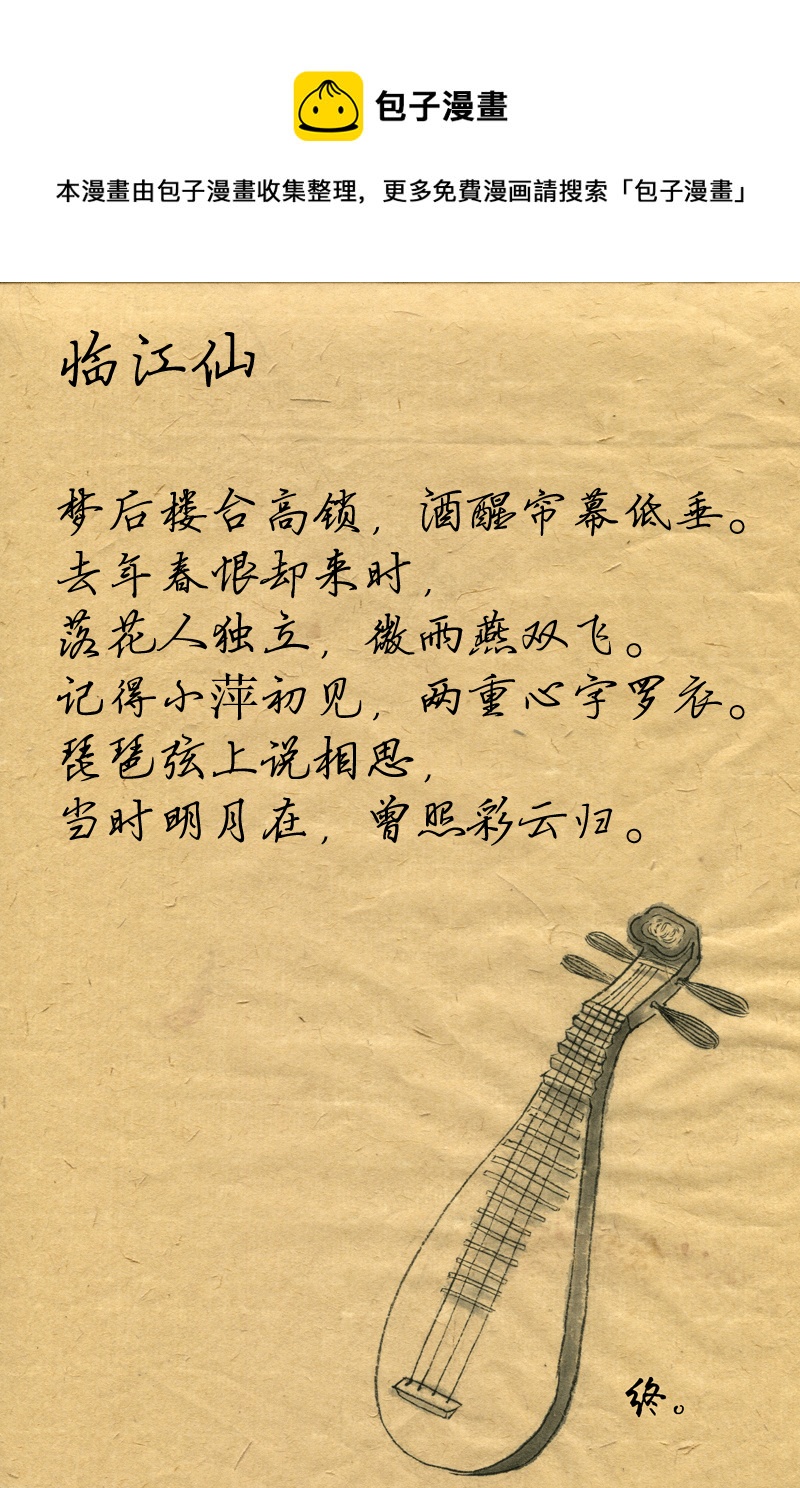 包子漫畫
本漫畫由包子漫畫收集整理，更多免費漫画請搜索「包子漫畫」
临江仙
梦后楼台高锁，酒醒帘幕低垂。
去年春恨却来时，
落花人独立，微雨燕双飞。
记得小萍初见，两重心字罗衣。
琵琶弦上说相思，
当时明月在，曾照彩云归。
终。